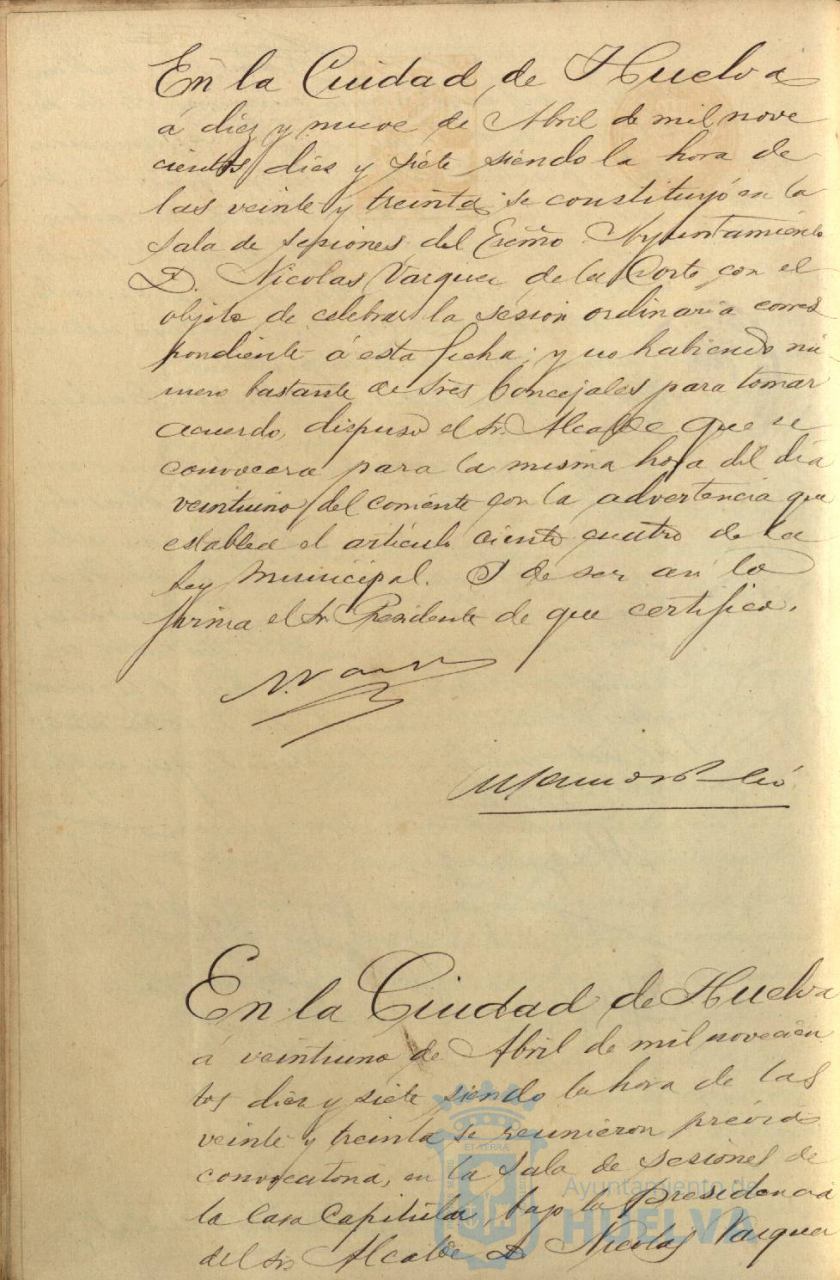 En la Cuidad de Huelva
á diez y nueve de Abril de mil nove
cientos diez y siete siendo la hora de
las veinte y treinta se constituyó en la
Sala de sesiones del Excmo Ayuntamiento
D. Nicolas Vazquez de la Corte con el
objeto de celebrar la sesion ordinaria corres
pondiente á esta fecha; y no habiendo nú
mero bastante de Sres Concejales para tomar
acuerdo, dispuso el Sr. Alcalde que se
convocara para la misma hora del dia
veintiuno del corriente con la advertencia que
establece el artículo ciento cuatro de la
Ley Municipal. Y de ser así lo
firma el Sr. Presidente de que certifico.
En la Ciudad de Huelva
á veintiuno de Abril de mil novecien
tos diez y siete siendo la hora de las
veinte y treinta se reunieron prévia
convocatoria, en la Sala de sesiones de
la Casa Capitular, bajo la Presidencia
del Sr Alcalde D Nicolas Vazquez
Ayuntamiento de
HUELVA